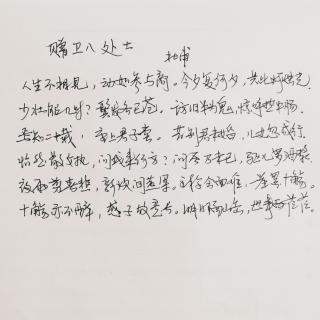 赠卫八处士
杜甫
人生不相见，动如参与商。今夕复何夕，共此灯烛光。
少壮能几时？鬓发各已苍。访旧半为鬼，惊呼热中肠。
焉知二十载，重上君子堂。昔别君未婚，儿女忽成行。
怡然敬父执，问我来何方？问答乃未已，驱儿罗酒浆。
夜雨剪春韭，新炊间黄粱。主称会面难，一举累十觞。
十觞亦不醉，感子故意长。明日隔山岳，世事两茫茫。